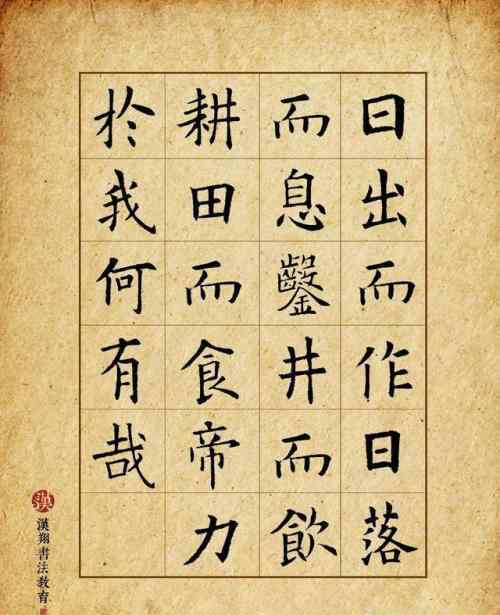 日出而作日落
而息鑿井而飲
耕田而食帝力
於我何有哉
漢
漢翔書法教育